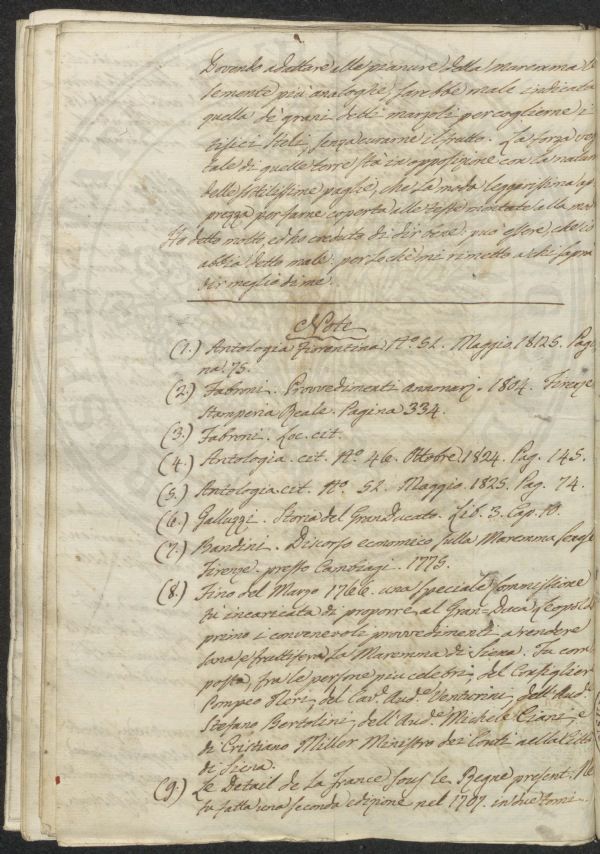 Dovendo adattare alle pianure della Maremma
semente più analoghe, sarebbe male indicata
quella de' grani detti marzoli per coglierne i
tifici steli, senza curarne il frutto. La forza veg
tale di quelle terre sta in opposizione con la natur
delle sottilissime paglie, che la moda leggerissima ap
prezza per farne coperta alle teste montate alla mo
Ho detto molto, ed ho creduto di dir bene: può essere, che io
abbia detto male: perlochè mi rimetto a chi sapra
dir meglio di me.
Note
(1.) Antologia Fiorentina. N.º 52. Maggio 1825. Pagi
na 75.
(2.) Fabroni. Provvedimenti annonarj. 1804. Firenze
Stamperia Reale. Pagina 334.
(3.) Fabroni. Loc. cit.
(4.) Antologia. cit. N.º 46. Ottobre 1824. Pag. 145.
(5.) Antologia. cit. N.º 52. Maggio 1825. Pag. 74.
(6.) Galluzzi. Storia del GranDucato. Lib. 3. Cap. 10.
(7.) Bandini. Discorso economico sulla Maremma Senese
Firenze. presso Cambiagi. 1775.
(8.) Fino del Marzo 1766. una speciale Commissione
fu incaricata di proporre al Gran-Duca Leopoldo
primo i convenevoli provvedimenti a rendere
sana e fruttifera la Maremma di Siena. Fu com
posta, fra le persone più celebri, del Consiglier
Pompeo Neri, del Cav.e Aud.e Venturini, dell' Aud.e
Stefano Bertolini, dell' Aud.e Michele Ciani, e
di Cristiano Miller Ministro dei Conti nella Città
di Siena.
(9.) Le Detail de la France sous le Regne present. Ne
fu fatta una seconda edizione nel 1707. in due tomi.